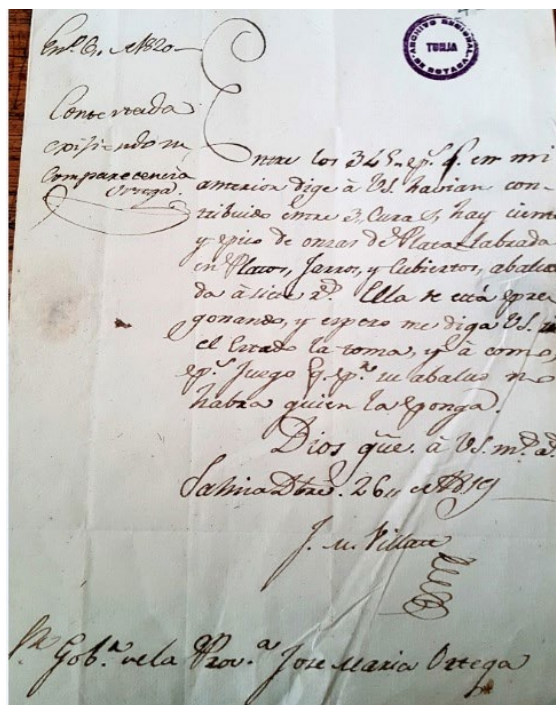 En.º 3. de 1820
Contestada
exijiendo su
comparecencia
Ortega.
ARCHIVO REGIONAL
TUNJA
Entre los 345 p.s q. en mi
anterior dige à VS. havian con-
tribuido entre 3, Curas, hay ciento
y pico de onzas de Plata Labrada
en Platos, Jarros, y Cubiertos, abalua
da à siete r.s Ella se està pre
gonando, y espero me diga VS. si
el Estado la toma, y à como,
p.s Juego q. p.r su abaluo no
habra quien la ponga.
Dios gũe. à VS. m.s a.s
Salina Dbre. 26 de 1819
J. M. Villate
Sr. Gob.r de la Prov.a Jose Maria Ortega